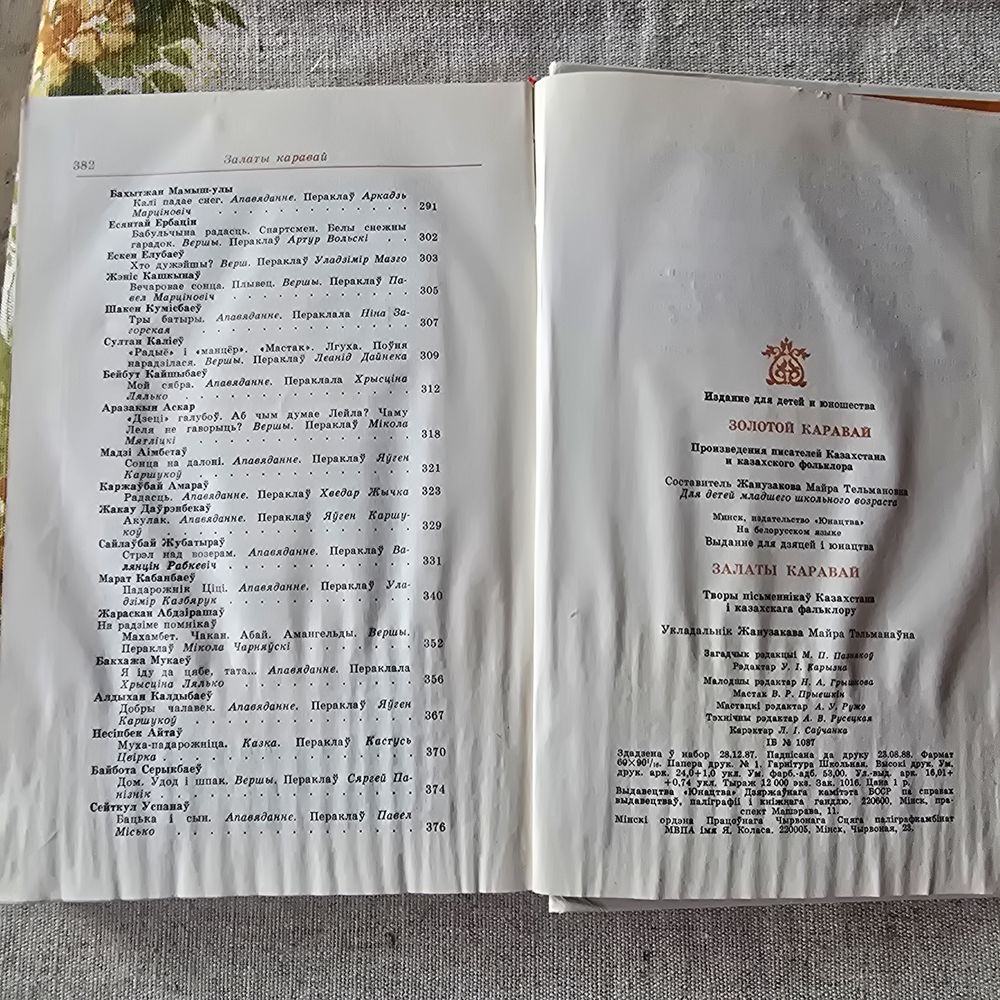 382
Залаты каравай
Бахытжан Мамыш-улы
Калі падае снег. Апавяданне. Пераклаў Аркадзь
Марціновіч . . . . . . . . . . . . . 291
Есянтай Ербацін
Бабульчына радасць. Спартсмен. Белы снежны
гарадок. Вершы. Пераклаў Артур Вольскі . . 302
Ескен Елубаеў
Хто дужэйшы? Верш. Пераклаў Уладзімір Мазго 303
Жэніс Кашкынаў
Вечаровае сонца. Плывец. Вершы. Пераклаў Па-
вел Марціновіч . . . . . . . . . . . 305
Шакен Кумісбаеў
Тры батыры. Апавяданне. Пераклала Ніна За-
горская . . . . . . . . . . . . . 307
Султан Каліеў
«Радыё» і «манцёр». «Мастак». Лгуха. Поўня
нарадзілася. Вершы. Пераклаў Леанід Дайнека 309
Бейбут Кайшыбаеў
Мой сябра. Апавяданне. Пераклала Хрысціна
Лялько . . . . . . . . . . . . . 312
Аразакын Аскар
«Дзеці» галубоў. Аб чым думае Лейла? Чаму
Леля не гаворыць? Вершы. Пераклаў Мікола
Мятліцкі . . . . . . . . . . . . . 318
Мадзі Аімбетаў
Сонца на далоні. Апавяданне. Пераклаў Яўген
Каршукоў . . . . . . . . . . . . . 321
Каржаўбай Амараў
Радасць. Апавяданне. Пераклаў Хведар Жычка 323
Жакау Даўрэнбекаў
Акулак. Апавяданне. Пераклаў Яўген Каршу-
коў . . . . . . . . . . . . . . 329
Сайлаўбай Жубатыраў
Стрэл над возерам. Апавяданне. Пераклаў Ва-
лянцін Рабкевіч . . . . . . . . . . . 331
Марат Кабанбаеў
Падарожнік Ціці. Апавяданне. Пераклаў Ула-
дзімір Казбярук . . . . . . . . . . . 340
Жараскан Абдзірашаў
На радзіме помнікаў
Махамбет. Чакан. Абай. Амангельды. Вершы.
Пераклаў Мікола Чарняўскі . . . . . . . 352
Бакхажа Мукаеў
Я іду да цябе, тата... Апавяданне. Пераклала
Хрысціна Лялько . . . . . . . . . . . 356
Алдыхан Калдыбаеў
Добры чалавек. Апавяданне. Пераклаў Яўген
Каршукоў . . . . . . . . . . . . . 367
Несіпбек Айтаў
Муха-падарожніца. Казка. Пераклаў Кастусь
Цвірка . . . . . . . . . . . . . 370
Байбота Серыкбаеў
Дом. Удод і шпак. Вершы. Пераклаў Сяргей Па-
нізнік . . . . . . . . . . . . . 374
Сейткул Успанаў
Бацька і сын. Апавяданне. Пераклаў Павел
Місько . . . . . . . . . . . . . 376
Издание для детей и юношества
ЗОЛОТОЙ КАРАВАЙ
Произведения писателей Казахстана
и казахского фольклора
Составитель Жанузакова Майра Тельмановна
Для детей младшего школьного возраста
Минск, издательство «Юнацтва»
На белорусском языке
Выданне для дзяцей і юнацтва
ЗАЛАТЫ КАРАВАЙ
Творы пісьменнікаў Казахстана
і казахскага фальклору
Укладальнік Жанузакава Майра Тэльманаўна
Загадчык рэдакцыі М. П. Пазнякоў
Рэдактар У. І. Карызна
Малодшы рэдактар Н. А. Грышкова
Мастак В. Р. Прывешкін
Мастацкі рэдактар А. У. Ружо
Тэхнічны рэдактар А. В. Русецкая
Карэктар Л. І. Саўчанка
ІБ № 1087
Здадзена ў набор 28.12.87. Падпісана да друку 23.08.88. Фармат
60×90 1/16. Папера друк. № 1. Гарнітура Школьная. Высокі друк. Ум.
друк. арк. 24,0+1,0 укл. Ум. фарб.-адб. 53,00. Ул.-выд. арк. 16,01+
+0,74 укл. Тыраж 12 000 экз. Зак. 1016. Цана 1 р.
Выдавецтва «Юнацтва» Дзяржаўнага камітэта БССР па справах
выдавецтваў, паліграфіі і кніжнага гандлю. 220600, Мінск, пра-
спект Машэрава, 11.
Мінскі ордэна Працоўнага Чырвонага Сцяга паліграфкамбінат
МВПА імя Я. Коласа. 220005, Мінск, Чырвоная, 23.